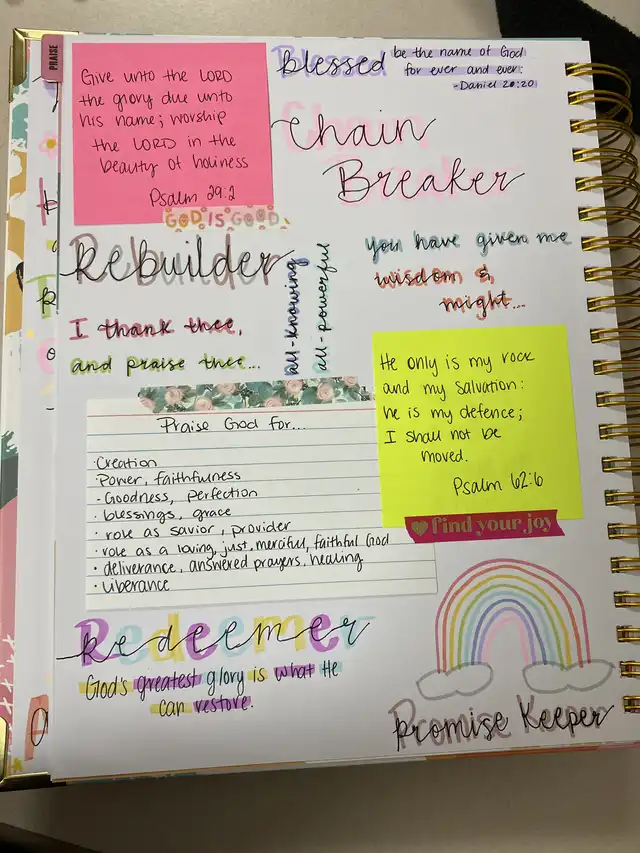 PRAISE
Give unto the LORD
the glory due unto
his name; worship
the LORD in the
beauty of holiness
Psalm 29:2
GOD IS GOOD
blessed
be the name of God
for ever and ever:
-Daniel 20:20
Chain
Breaker
Rebuilder
all-knowing
all-powerful
you have given me
wisdom &
might...
I thank thee,
and praise thee...
He only is my rock
and my salvation:
he is my defence;
I shall not be
moved.
Psalm 62:6
find your joy
Praise God for...
·Creation
·Power, faithfulness
·Goodness, perfection
·blessings, grace
·role as savior, provider
·role as a loving, just, merciful, faithful God
·deliverance, answered prayers, healing
·liberance
Redeemer
God's greatest glory is what He
can restore.
Promise Keeper